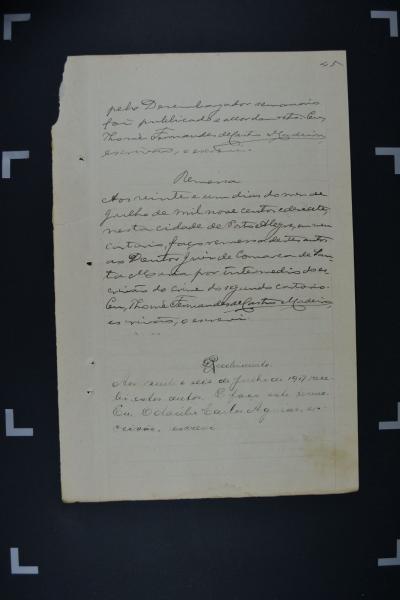 45
pelo Desembargador semanario
foi publicado o accordam retro. Eu,
Thomé Fernandes de Castro Madeira,
escrivão, o escrevi.
Remessa
Aos vinte e um dias do mez de
Julho de mil nove centos e desesete,
nesta cidade de Porto Alegre, em meu
cartorio, faço remessa destes autos
ao Doutor Juiz de Comarca de San-
ta Maria por intermedio do es-
crivão do crime do segundo cartorio.
Eu, Thomé Fernandes de Castro Madeira,
escrivão, o escrevi.
Recebimento
Aos vinte e seis de Julho de 1917 rece-
bi estes autos. E faço este termo.
Eu Odacilio Carlos Aguiar, es-
crivão, escrevi